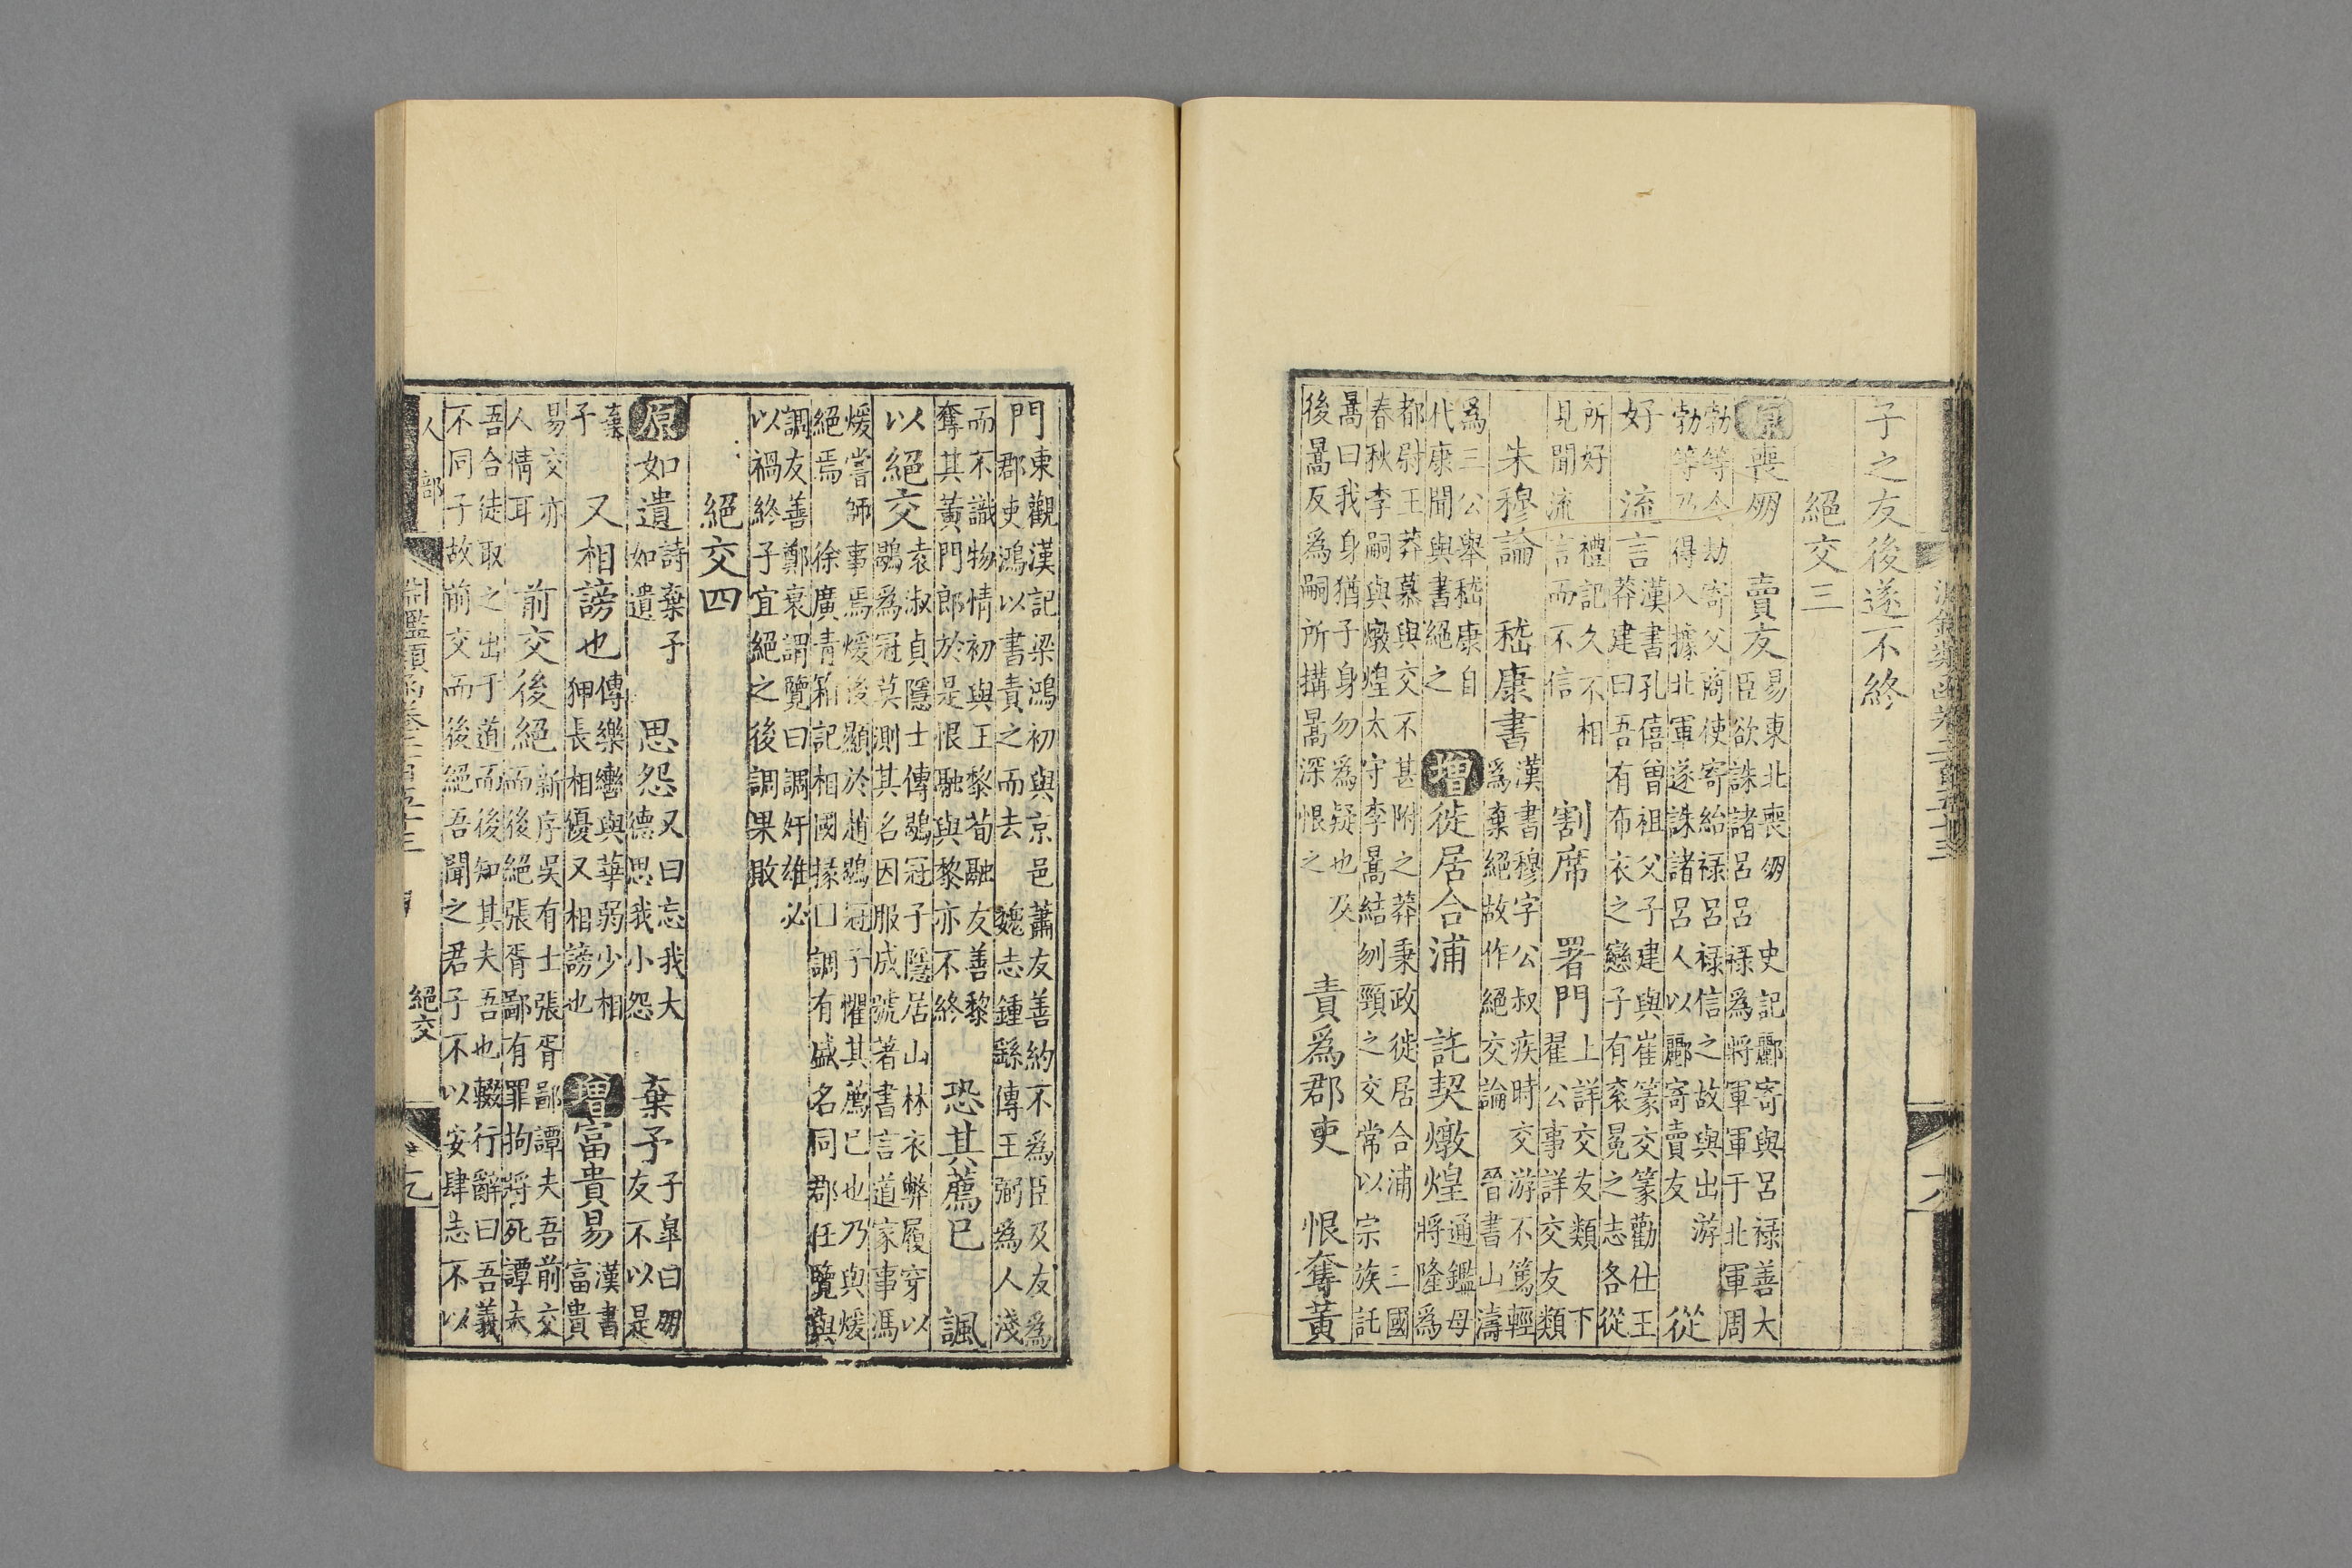 子之友後遂不終
絕交三
原喪朋 賣友易東北喪朋 史記酈寄與呂祿善大臣欲誅諸呂呂祿為將軍軍于北軍周
勃等令劫寄父商使寄紿祿呂祿信之故與出游勃等乃得入據北軍遂誅諸呂人以酈寄賣友 從
好 流言漢書孔僖曾祖父子建與崔篆交篆勸仕王莽建曰吾有布衣之戀子有袞冕之志各從
所好 禮記久不相見聞流言而不信 割席 署門上詳交友類下翟公事詳交友類
朱穆論 嵇康書漢書穆字公叔疾時交游不篤輕為棄絕故作絕交論 晉書山濤
為三公舉嵇康自代康聞與書絕之 增徙居合浦 託契燉煌通鑑母將隆為
都尉王莽慕與交不甚附之莽秉政徙居合浦 三國春秋李嗣與燉煌太守李暠結刎頸之交常以宗族託
暠曰我身猶子身勿為疑也及後暠反為嗣所搆暠深恨之 責為郡吏 恨奪黃
門東觀漢記梁鴻初與京邑蕭友善約不為臣及友為郡吏鴻以書責之而去 魏志鍾繇傳王弼為人淺
而不識物情初與王黎荀融友善黎奪其黃門郎於是恨融與黎亦不終 恐其薦己 諷
以絕交袁淑貞隱士傳鶡冠子隱居山林衣弊履穿以鶡為冠莫測其名因服成號著書言道家事馮
煖嘗師事焉煖後顯於趙鶡冠子懼其薦己也乃與煖絕焉 徐廣青箱記相國掾囗調有盛名同郡任覽與
調友善鄭袤謂覽曰調奸雄必以禍終子宜絕之後調果敗
絕交四
原如遺詩棄予如遺 思怨又曰忘我大德思我小怨 棄予子臯曰朋友不以是
棄予 又相謗也傳樂轡與華弱少相狎長相優又相謗也 增富貴易漢書富貴
易交亦人情耳 前交後絕新序吳有士張胥鄙譚夫吾前交而後絕張胥鄙有罪拘將死譚夫
吾合徒取之出于道而後知其夫吾也輟行辭曰吾義不同子故前交而後絕吾聞之君子不以安肆志不以
人部
絕交